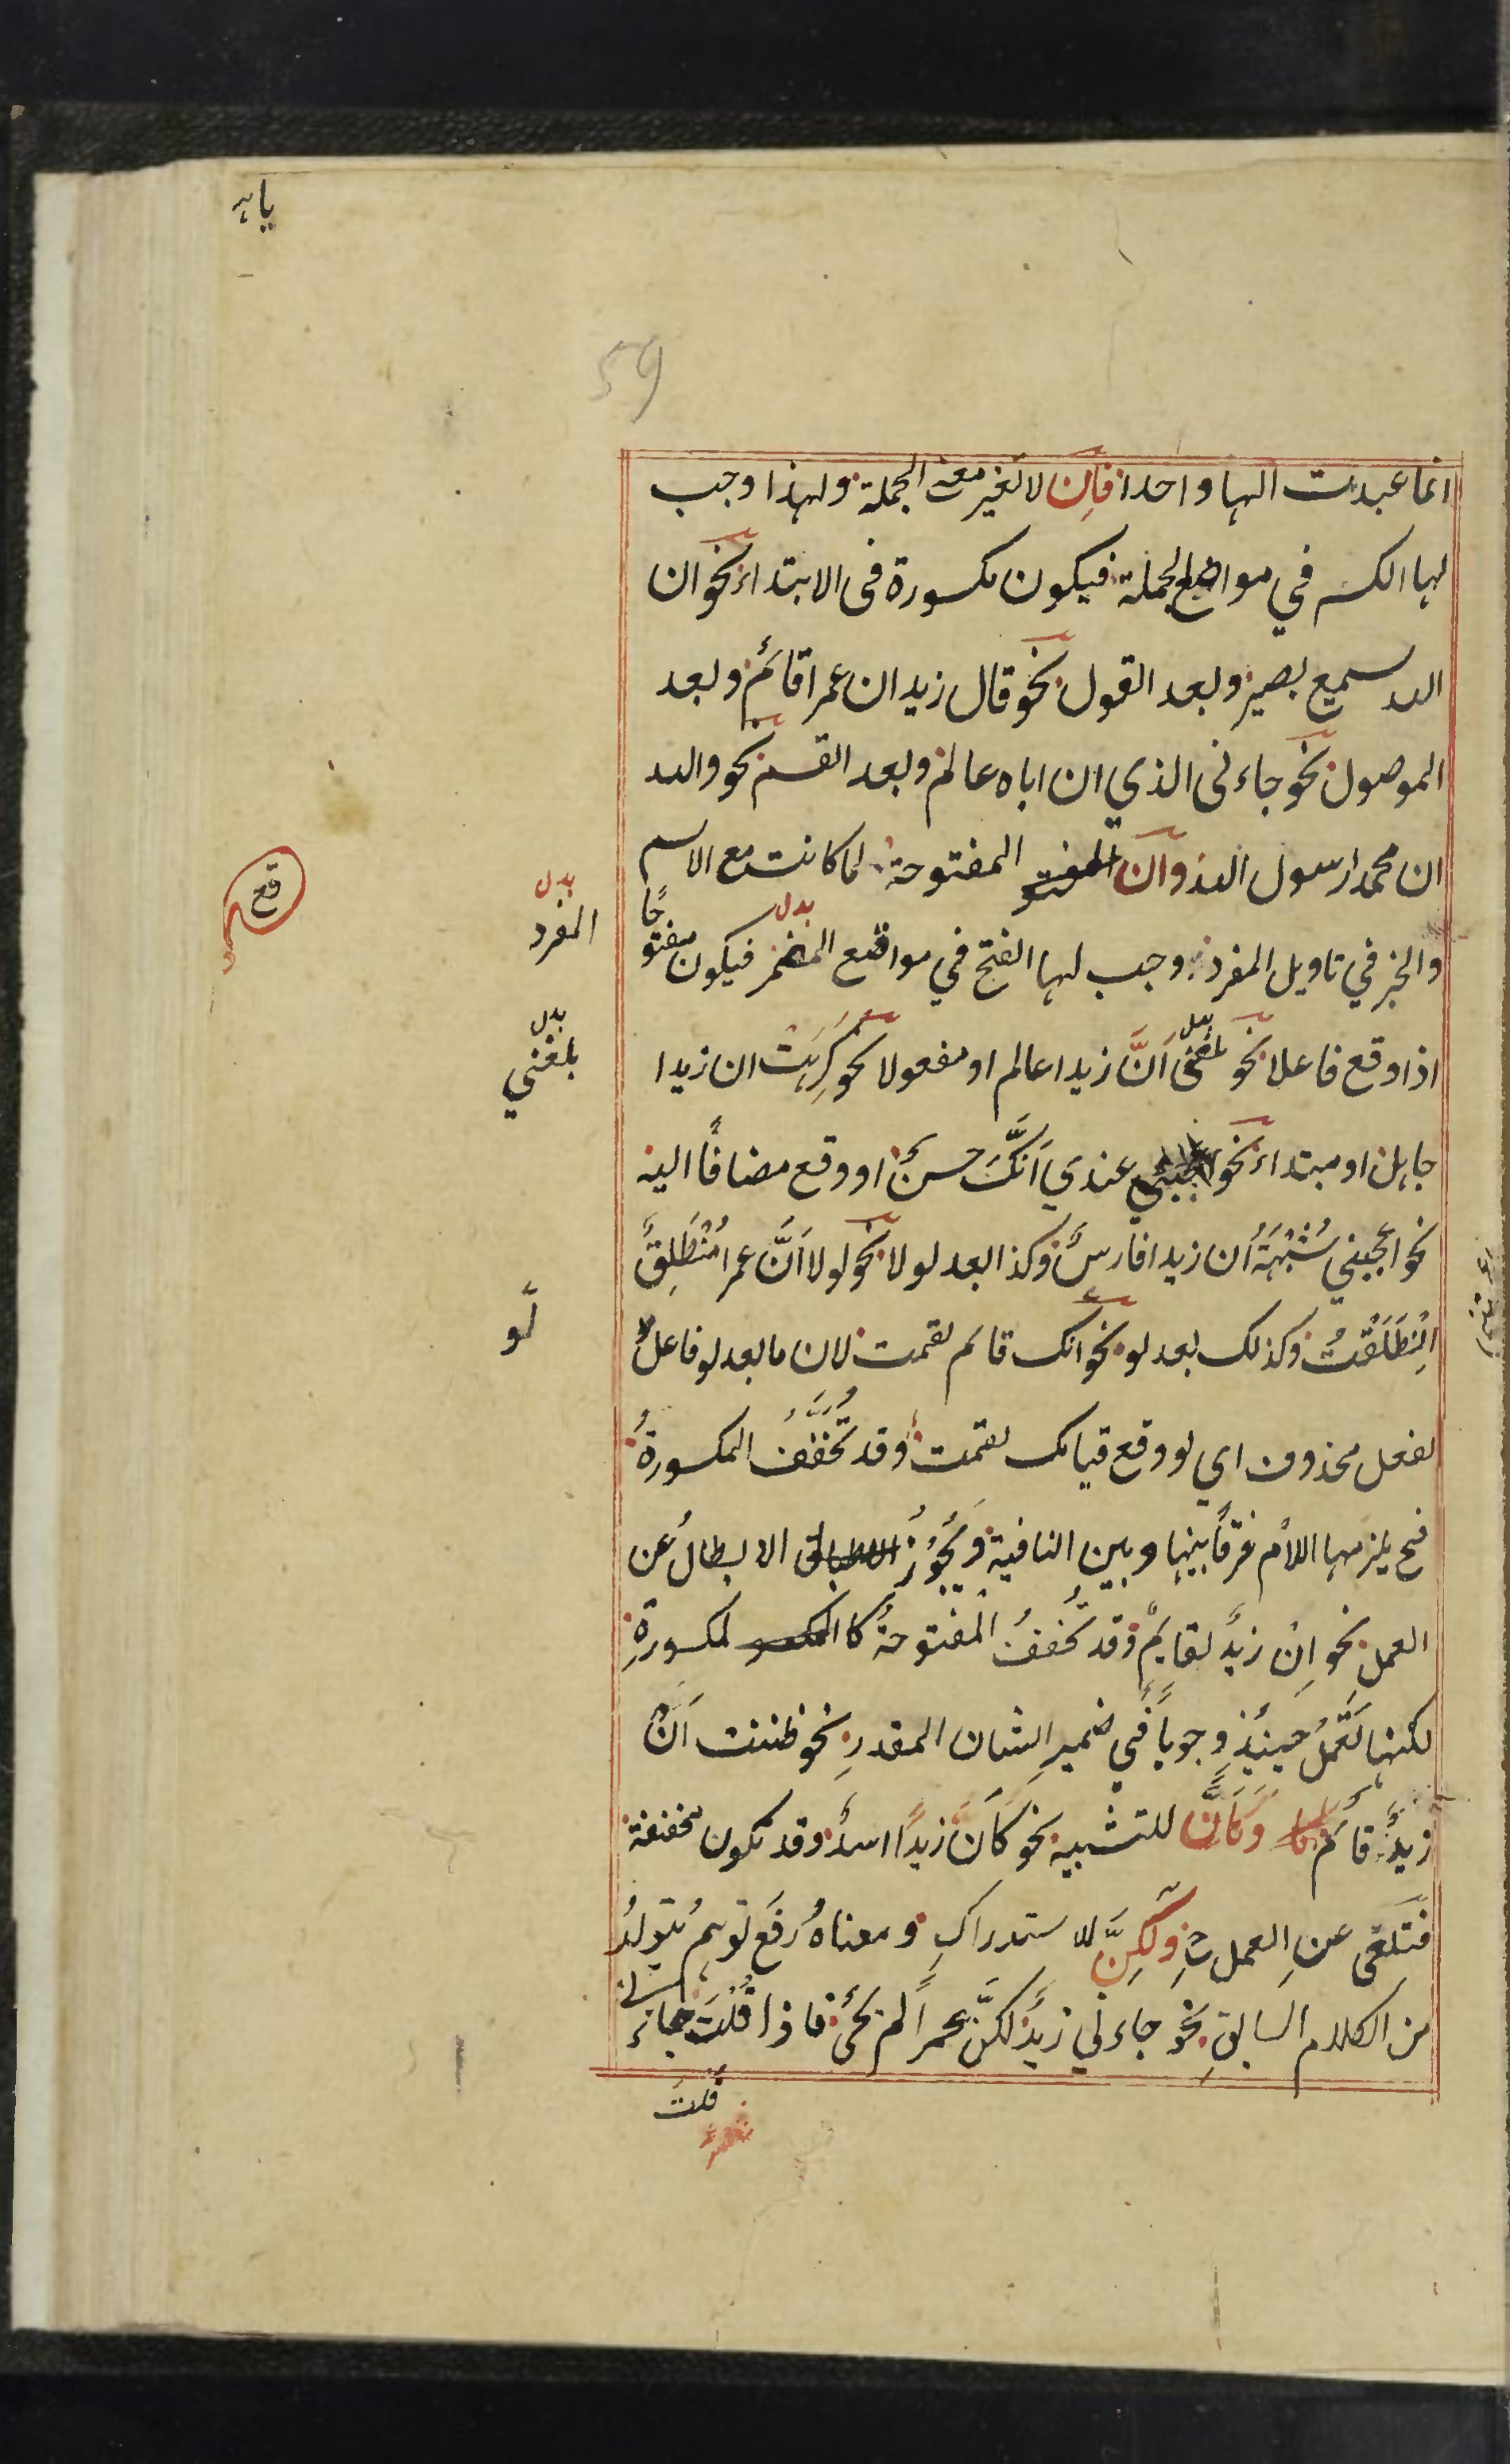 یا ہہ
59
انما عبدت الہا واحدا فاِن لا تغیر معنے الجملة ولہذا وجب
لہا الکسر فی مواضع الجملة فیکون مکسورة فی الابتداء نحو ان
اللہ سمیع بصیر وبعد القول نحو قال زید ان عمرا قائم وبعد
الموصول نحو جاءنی الذی ان اباہ عالم وبعد القسم نحو واللہ
ان محمدا رسول اللہ وان المفتو المفتوحة لما کانت مع الاسم
والخبر فی تاویل المفرد وجب لہا الفتح فی مواضع فیکون مفتوحًا
اذا وقع فاعلا نحو بلغنی اَنَّ زیدا عالم او مفعولا نحو کَرِہْتُ ان زیدا
جاہل او مبتداء نحو عندی اَنَّکَ حسنٌ او وقع مضافًا الیہ
نحو اعجبنی شُبْہَةُ ان زیدا فارسٌ وکذا بعد لولا نحو لولا اَنَّ عمرا مُنْطَلِقٌ
اِنْطَلَقْتُ وکذلک بعد لو نحو انک قائم لقمت لان ما بعد لو فاعلٌ
لفعل محذوف ای لو وقع قیامک لقمت وقد تُخَفَّفُ المکسورةُ
فح یلزمہا اللام فرقًا بینہا وبین النافیة وَیَجُوْزُ الابطالُ عن
العمل نحو اِنْ زیدٌ لقایمٌ وقد تخففُ المفتوحةُ کا المکسو لمکسورةِ
لکنہا تَعْمَلُ حینئذٍ وجوبًا فی ضمیرِ الشان المقدرِ نحو ظننت اَنْ
زیدٌ قائم وَکَاَنَّ للتشبیہ نحو کَاَنَّ زیدًا اسدٌ وقد تکون مخففة
فتلغی عنِ العمل وَلٰکِنَّ للاستدراکِ ومعناہُ رفع توہمُ یتولدُ
من الکلام السابقِ نحو جاءنی زیدٌ لکنَّ عمرًا لم یجئ فاذا قُلْتَ جاءنی
قلت
قع
بدل
المفرد
بدل
بلغنی
لو